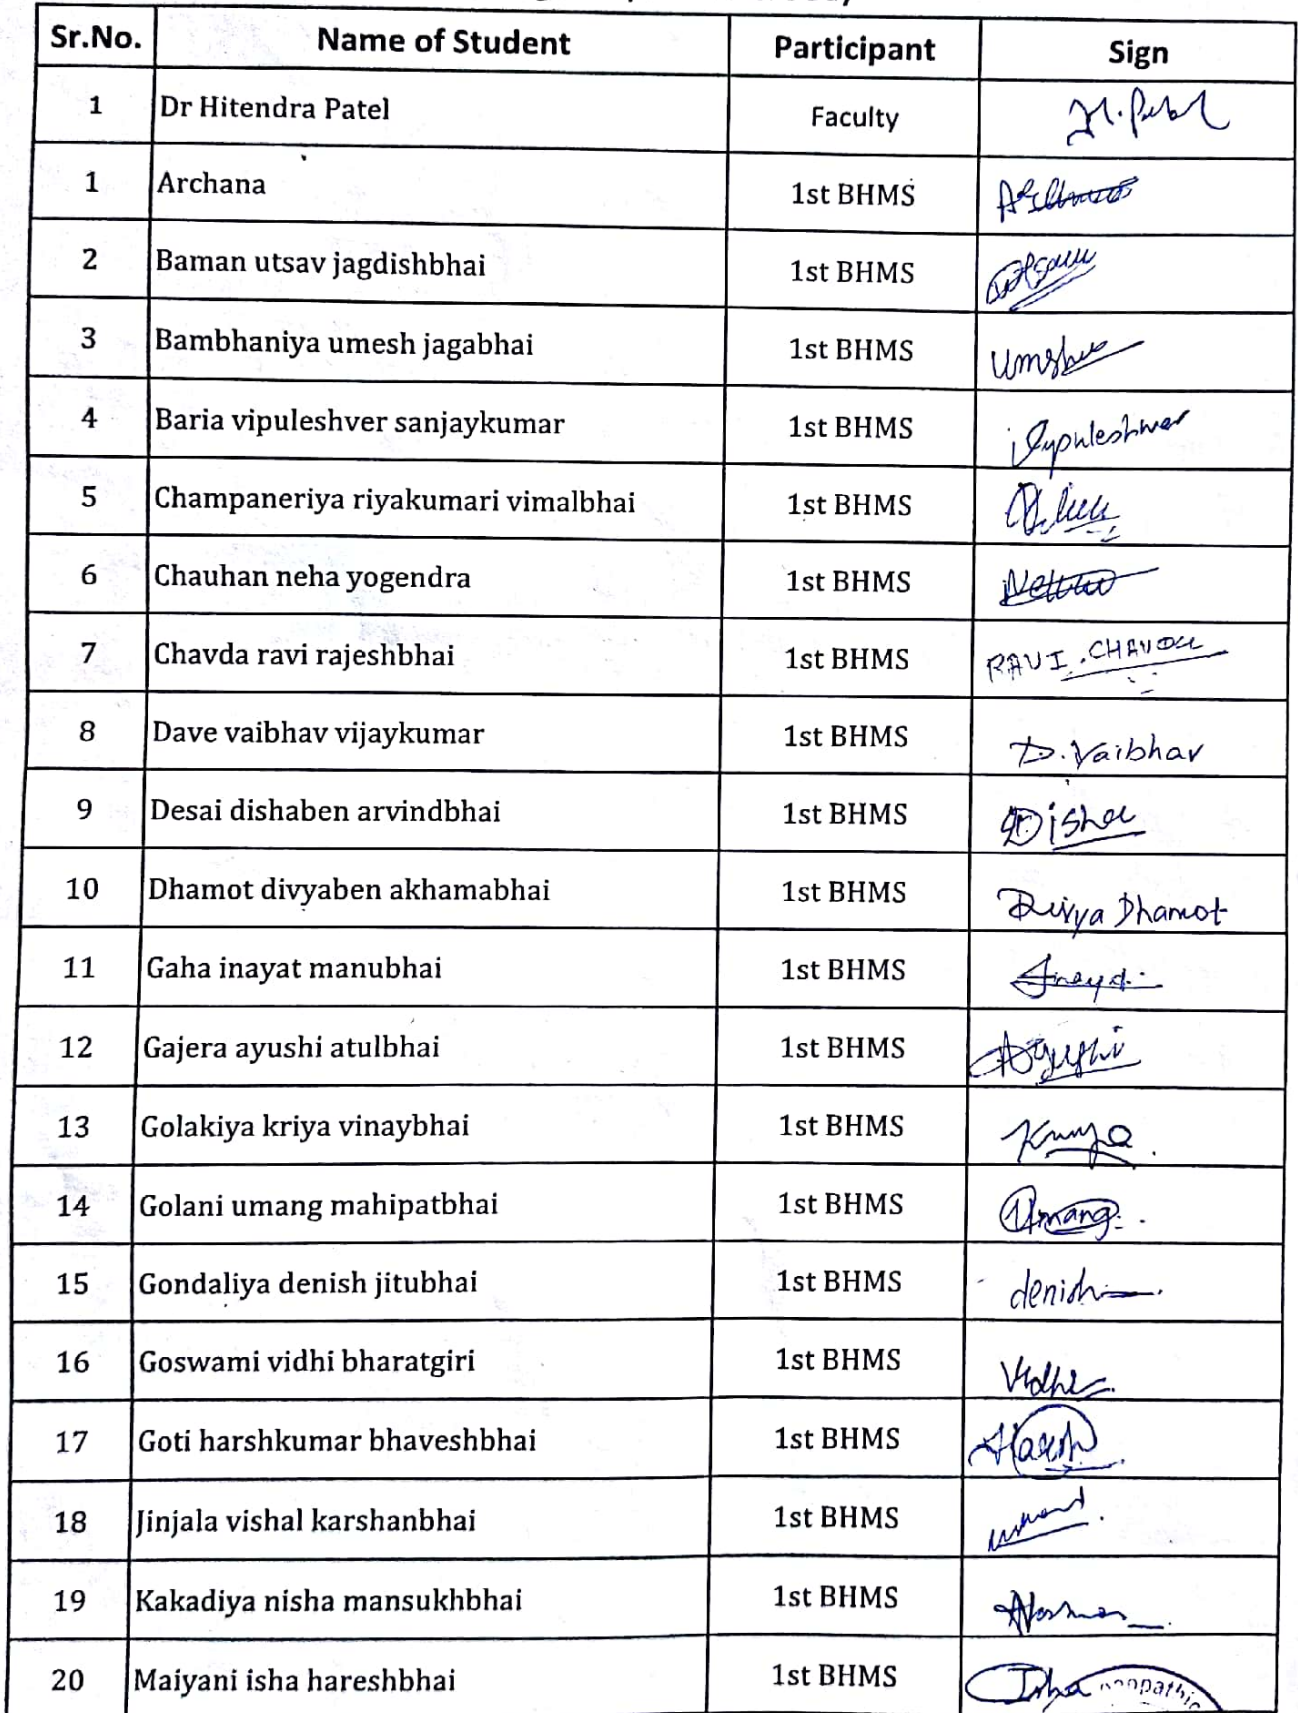 Sr.No. Name of Student Participant Sign
1 Dr Hitendra Patel Faculty H. Patel
1 Archana 1st BHMS
2 Baman utsav jagdishbhai 1st BHMS
3 Bambhaniya umesh jagabhai 1st BHMS
4 Baria vipuleshver sanjaykumar 1st BHMS Vypuleshwer
5 Champaneriya riyakumari vimalbhai 1st BHMS
6 Chauhan neha yogendra 1st BHMS
7 Chavda ravi rajeshbhai 1st BHMS RAVI.CHAVDA
8 Dave vaibhav vijaykumar 1st BHMS D.Vaibhav
9 Desai dishaben arvindbhai 1st BHMS Disha
10 Dhamot divyaben akhamabhai 1st BHMS Divya Dhamot
11 Gaha inayat manubhai 1st BHMS
12 Gajera ayushi atulbhai 1st BHMS Ayushi
13 Golakiya kriya vinaybhai 1st BHMS
14 Golani umang mahipatbhai 1st BHMS Umang
15 Gondaliya denish jitubhai 1st BHMS denish
16 Goswami vidhi bharatgiri 1st BHMS Vidhi
17 Goti harshkumar bhaveshbhai 1st BHMS Harsh
18 Jinjala vishal karshanbhai 1st BHMS
19 Kakadiya nisha mansukhbhai 1st BHMS
20 Maiyani isha hareshbhai 1st BHMS Isha